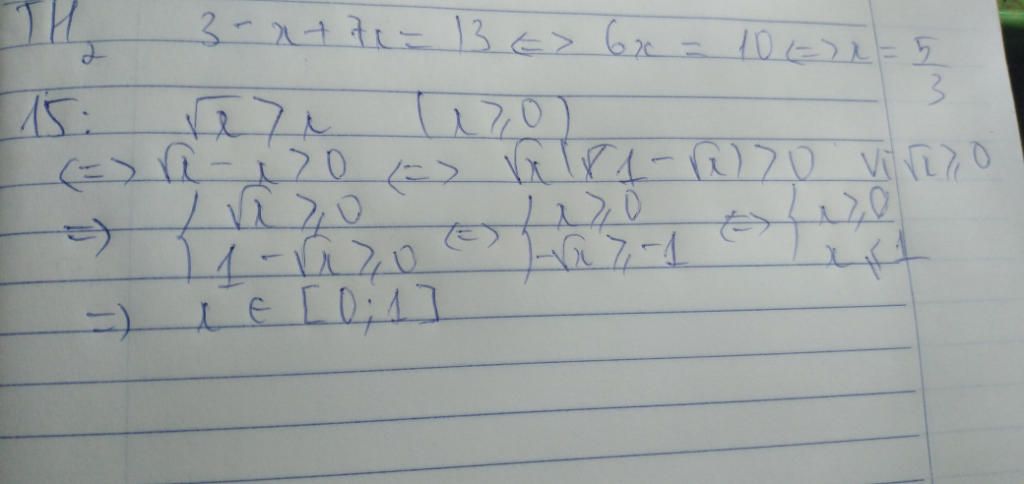 TH₂ 3 - x + 7x = 13 <=> 6x = 10 <=> x = 5/3
15: √x > x (x ⩾ 0)
<=> √x - x > 0 <=> √x (1 - √x) > 0 √x ⩾ 0
=> { √x ⩾ 0 <=> { x ⩾ 0 <=> { x ⩾ 0
1 - √x ⩾ 0 -√x ⩾ -1 x ⩽ 1
=> x ∈ [0; 1]